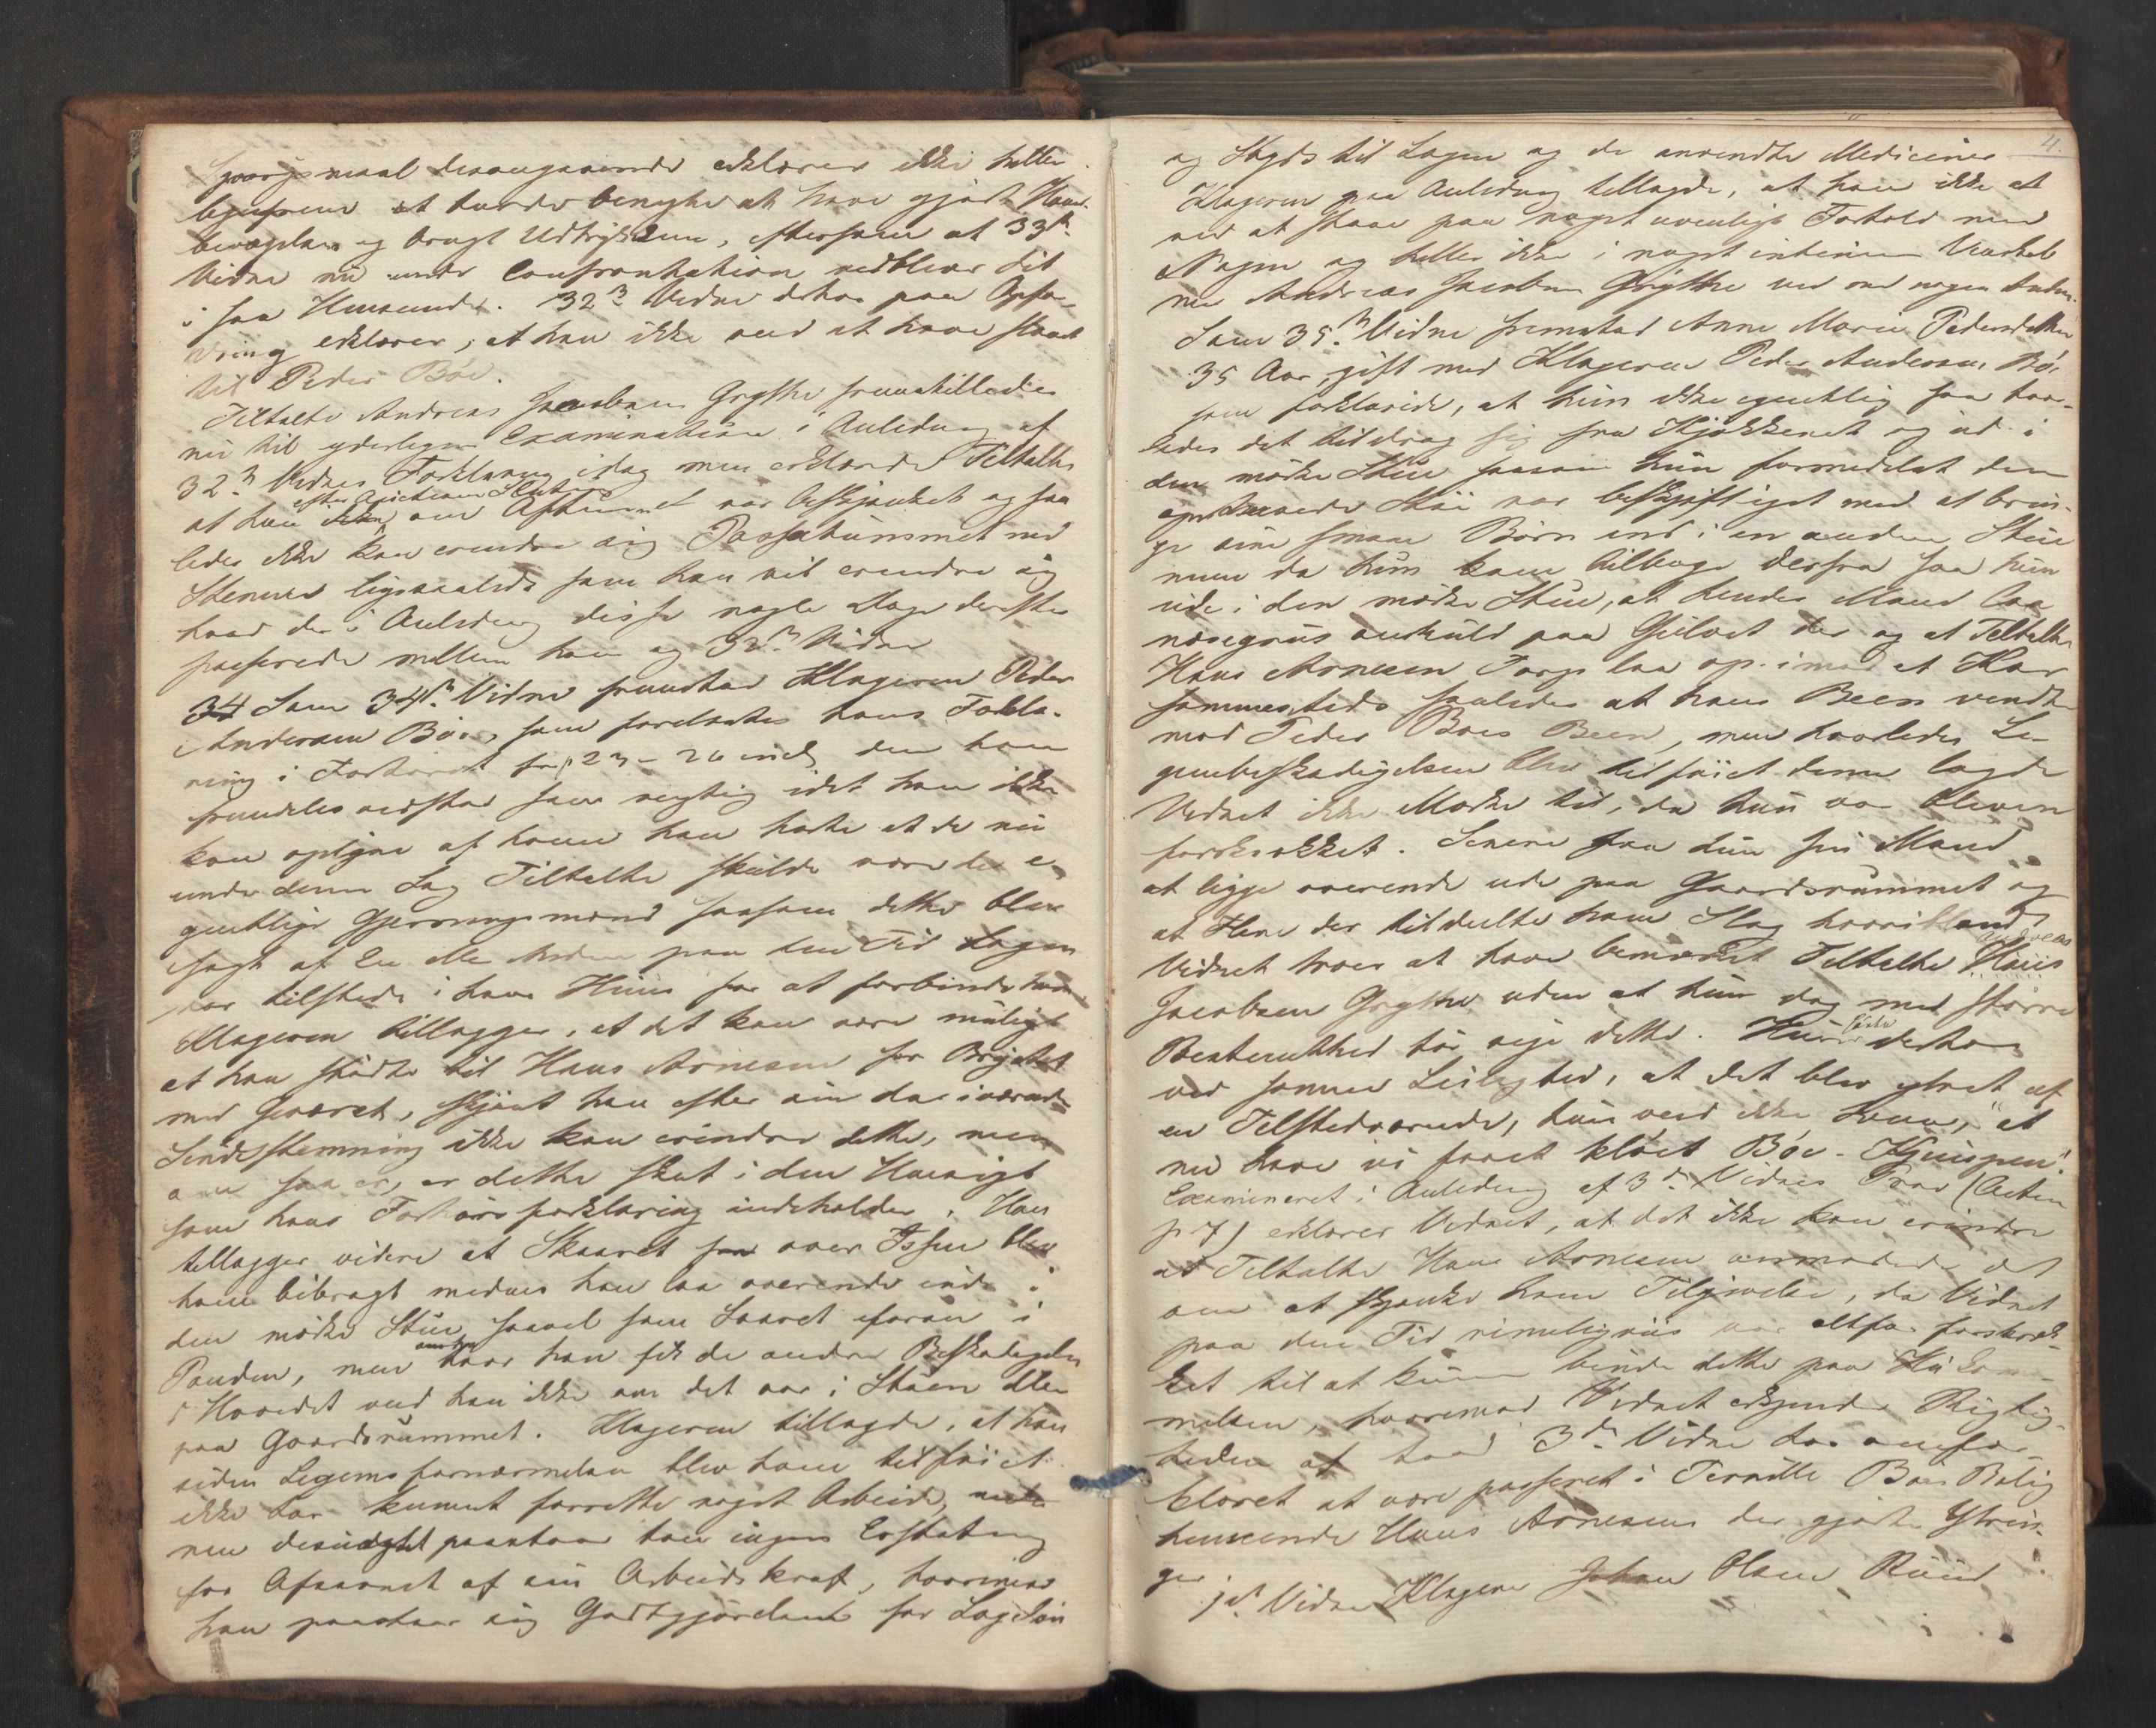 Spørgsmaal desangaaende erklærer ikke heller
at turde benegte at have gjort Haand-
bevægelsen og brugt Udtrykkene, eftersom at 33te
Vidne nu under Confrontation vedblev sit
i saa Henseende. 32te Vidne derhos paa Opfor-
dring erklærer, at han ikke veed at have skaaret
til Peder Bøe.
Tiltalte Andreas Jacobsen Grythe fremstilledes
nu til yderligere Examination i Anledning af
32te Vidnes Forklaring idag men erklærede Tiltalte
efter Auctionens Slutning
at han om Aftenen var beskjænket og saa-
ledes ikke kan erindre sig Passiaren med
Stener ligesaalidt som han vil erindre sig
hvad der i Anledning disse nogle Dage derefter
passerede mellem ham og 32te Vidne
34 Som 34te Vidne fremstod Klageren Peder
Andersen Bøe, som forelæstes hans Forkla-
ring i Forhøret fra p 23 - 26 incl, den han
fremdeles vedstod som rigtig idet han ikke
kan opgive af hvem han hørte at de nu
under denne Sag Tiltalte skulde være de e-
gentlige Gjerningsmænd saasom dette blev
sagt af En eller Anden paa den Tid Lægen
var tilstede i hans Huus for at forbinde ham
Klageren tillægger, at det kan være muligt
at han stødte til Hans Arnesen for Brystet
med Geværet, skjønt han efter sin daværende
Sindsstemning ikke kan erindre dette, men
om saa er, er dette skeet i den Hensigt
som hans Forhørsforklaring indeholder. Han
tillægger videre at Skaaret over Issen blev
ham bibragt medens han laa overende inde i
den mørke Stue saavel som Saaret foran i
Panden, men hvor han fik de andre Beskadigelser
i Hovedet veed han ikke om det var i Stuen eller
paa Gaardsrummet. Klageren tillagde, at han
siden Legemsfornærmelsen blev ham tilføiet
ikke har kunnet forrette noget Arbeide,
men desuagtet paastaar han ingen Erstatning
for Afsavnet af sin Arbeidskraft, hvorimod
han paastaar sig Godtgjørelse for Lægeløn
4.
og Skyds til Lægen og de anvendte Mediciner
Klageren paa Anledning tillagde, at han ikke at
ved at staae paa noget uvenligt Forhold med
Nogen og heller ikke i noget intimere Venskab
med Andreas Jacobsen Grythe end med nogen Anden.
Som 35te Vidne fremstod Anne Marie Pedersdatter
35 Aar, gift med Klageren Peder Andersen Bøe
som forklarede, at hun ikke egentlig saa hvor-
ledes det tildrog sig fra Kjøkkenet og ud i
den mørke Stue saasom hun formedelst den
opkomne Støi var beskjæftiget med at brin-
ge sine smaae Børn ind i en anden Stue
men da hun kom tilbage derfra saa hun
inde i den mørke Stue, at hendes Mand laa
næsegruus omkuld paa Gulvet der og at Tiltalte
Hans Arnesen Torp laa op imod et Kar
sammesteds saaledes at hans Been vendte
mod Peder Bøes Been, men hvorledes Le-
gemsbeskadigelsen blev tilføiet denne lagde
Vidnet ikke Mærke til, da hun var bleven
forskrækket. Senere saa hun sin Mand
at ligge overende ude paa Gaardsrummet og
at Flere der tildeelte ham Slag hvoriblandt
Vidnet troer at have bemærket Tiltalte Andreas
Jacobsen Grythe uden at hun dog med større
Bestemthed tør sige dette. Hun hørte derhos
ved samme Leilighed, at det blev ytret af
en Tilstedeværende, hun veed ikke hvem, "at
nu have vi faaet kløet Bøe-Kjeispen".
Examineret i Anledning af 3die Vidnes Prov (Acten
p 7) erklærer Vidnet, at det ikke kan erindre
at Tiltalte Hans Arnesen anmodede det
om at skjænke ham Tilgivelse, da Vidnet
paa den Tid rimeligviis var altfor forskræk-
ket til at kunne binde dette paa Hukom-
melsen, hvorimod Vidnet erkjender Rigtig-
heden af hvad 3die Vidne har anfor-
klaret at være passeret i Pernille Bøes Bolig
henseende Hans Arnesens der gjorte Ytrin-
ger
1ste Vidne Klageren Johan Olsen Ruud